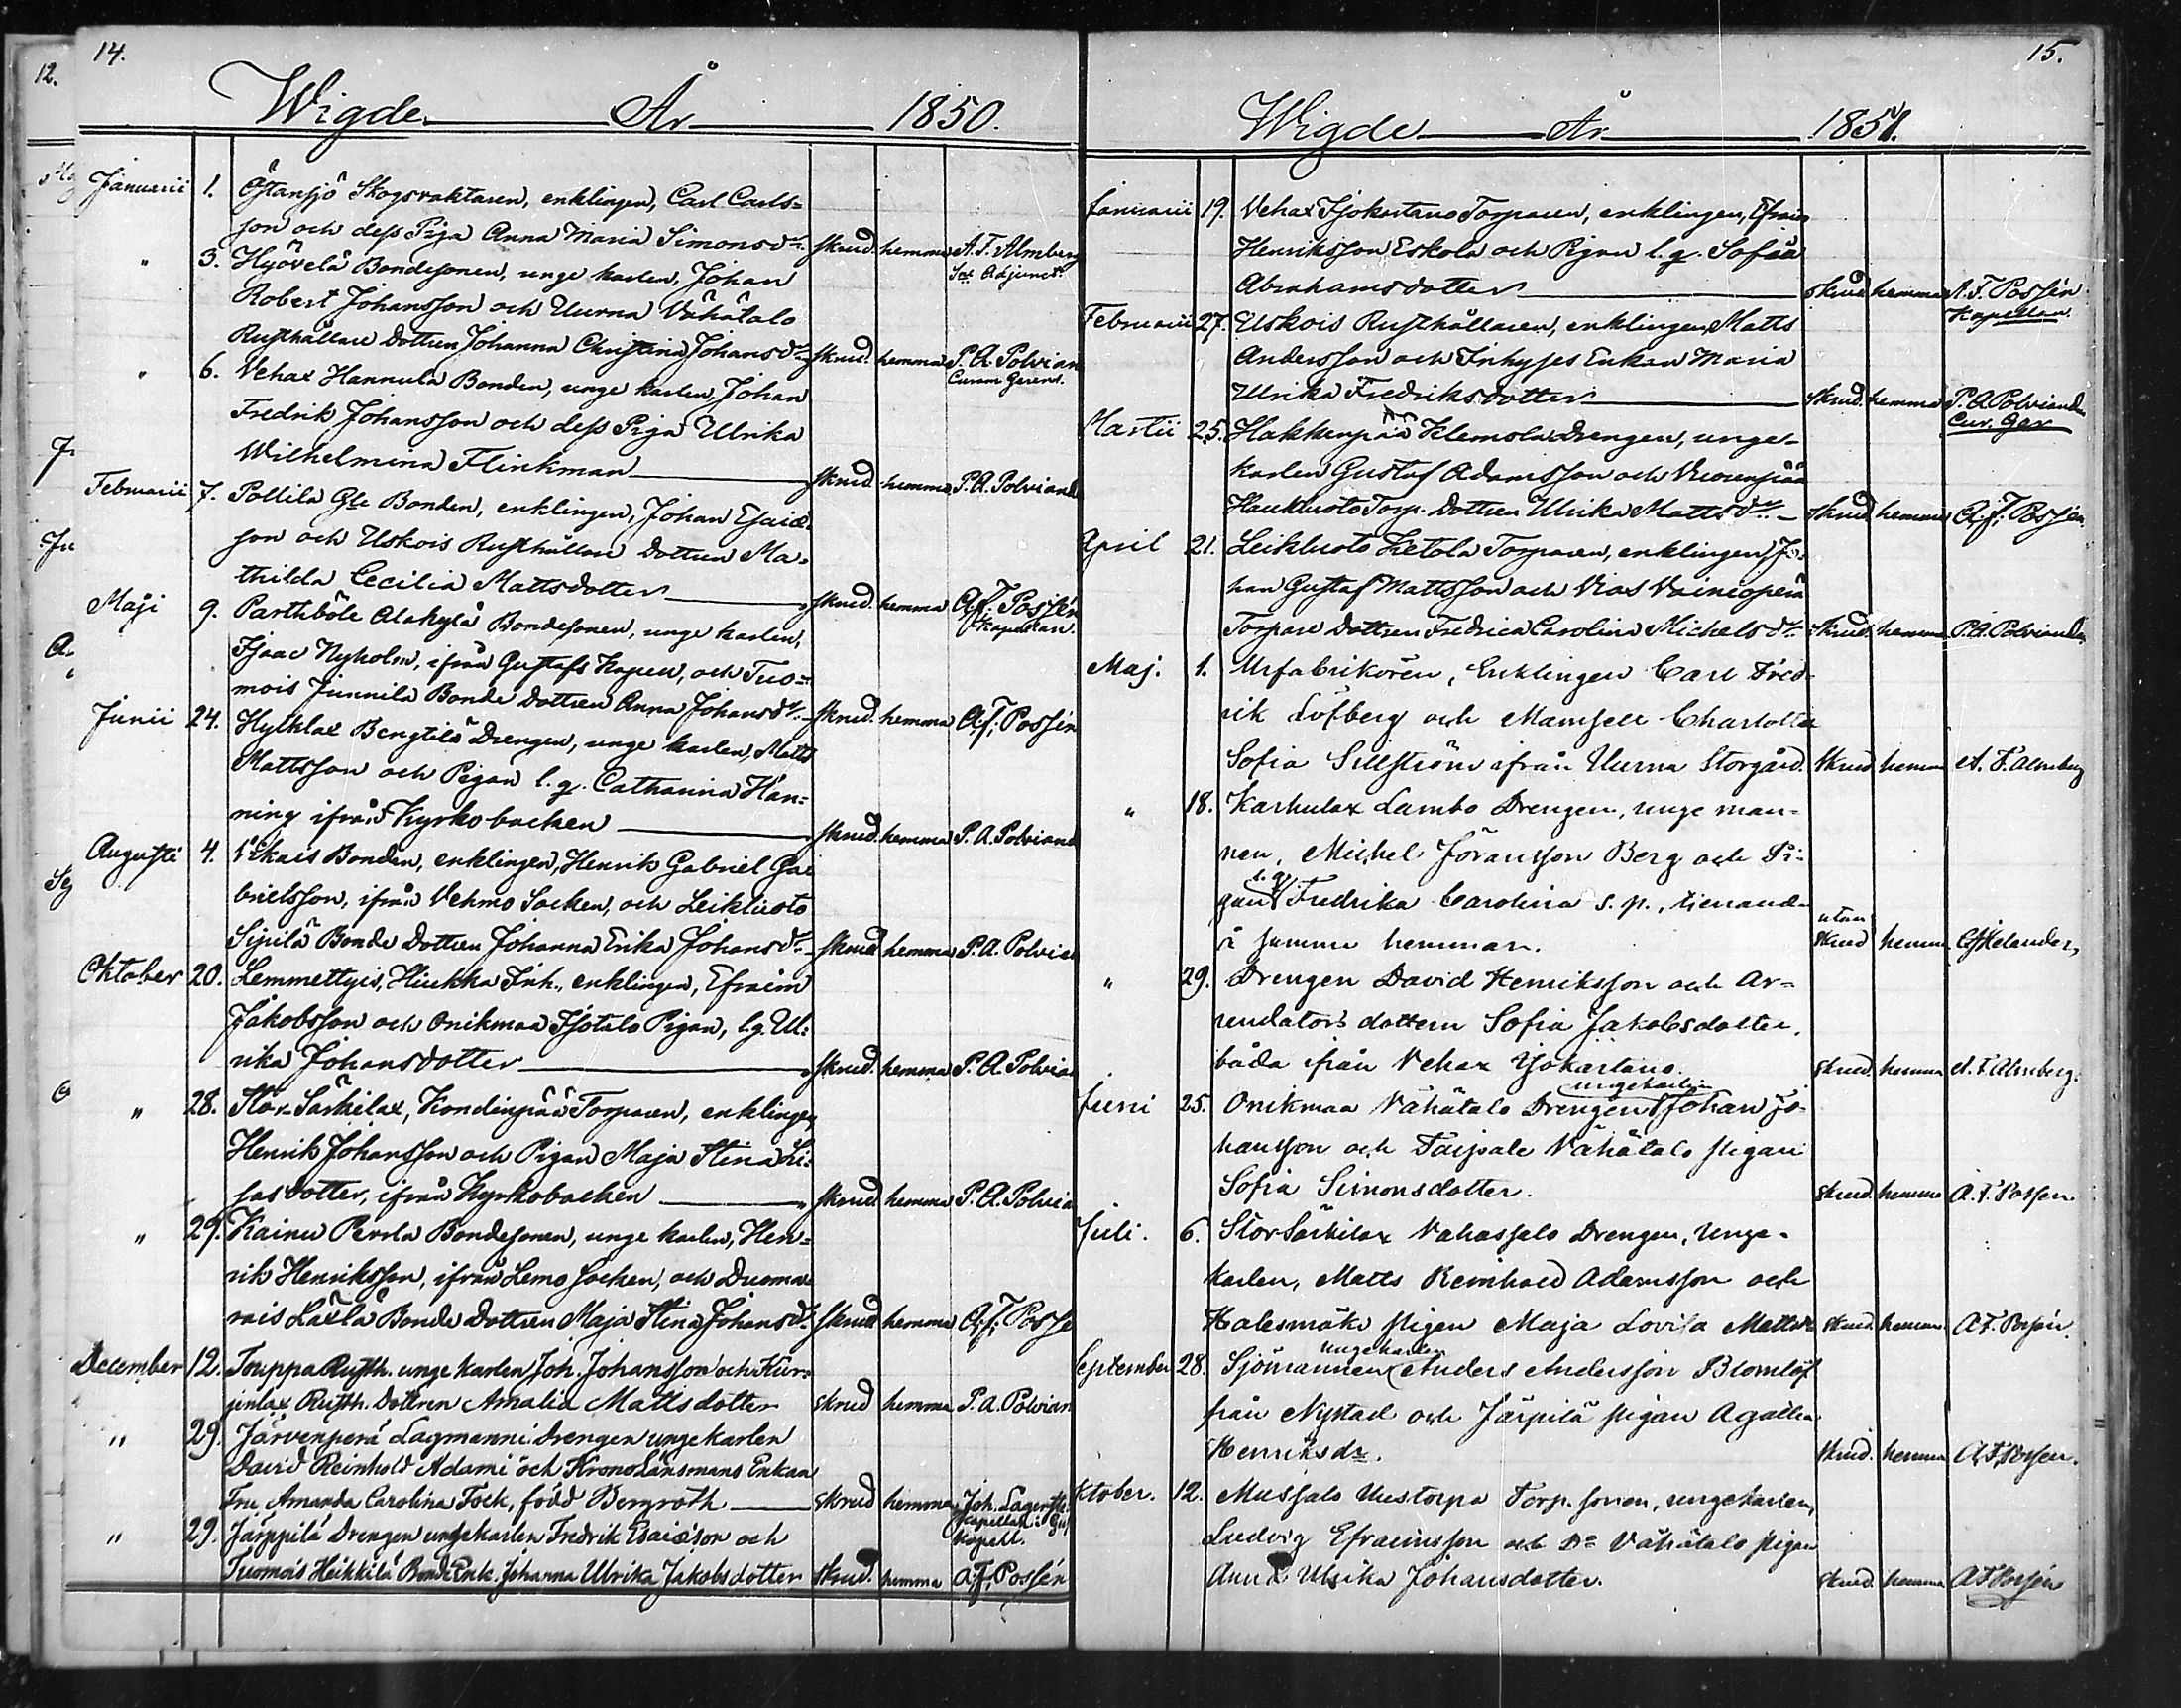 12.
14.
Wigde År 1850.
Januarii 1. Östansjö Skogsvaktaren, enklingen, Carl Carls=
son och dess Piga Anna Maria Simonsdr. skrud. hemma A. F. Almberg
Sct. Adjunct.
" 3. Hyövelä Bondesonen, unge karlen, Johan
Robert Johansson och Uurna Vähätalo
Rusthållare Dottren Johanna Christina Johansdr. skrud. hemma P. A. Polvian
Curam Gerens.
" 6. Vehax Hannula Bonden, unge karlen, Johan
Fredrik Johansson och dess Piga Ulrika
Wilhelmina Flinkman skrud. hemma P. A. Polviand
Februarii 7. Pollila Gle Bonden, enklingen, Johan Esaiæ-
son och Uskois Rusthållare Dottren Ma-
thilda Cecilia Mattsdotter skrud. hemma A. F. Possén
Kapellan.
Maji 9. Parthböle Alakylä Bondesonen, unge karlen,
Isaac Nyholm, ifrån Gustafs Kapell, och Tuo-
mois Junnila Bonde Dottren Anna Johansdr. skrud. hemma A. F. Possén
Junii 24. Hylklax Bengtilä Drengen, unge karlen, Matts
Mattsson och Pigan l. q. Catharina Hän=
ning ifrån Kyrkobacken skrud. hemma P. A. Polviand
Augusti 4. Bonden, enklingen, Henrik Gabriel Ga-
brielsson, ifrån Vehmo Socken, och Leikluoto
Sipilä Bonde Dottren Johanna Erika Johansdr. skrud hemma P. A. Polvian
Oktober 20. Lemmettyis, Hiukka Inh., enklingen, Efraim
Jakobsson och Onikmaa Isotalo Pigan, l. q. Ul-
rika Johansdotter skrud. hemma P. A. Polvian
" 28. Stor-Särkilax, Kondinpää Torparen, enklingen,
Henrik Johansson och Pigan Maja Stina Li-
sasdotter, ifrån Kyrkobacken skrud hemma P. A. Polvia
" 29. Kainu Perola Bondesonen, unge karlen, Hen=
rik Henriksson, ifrån Lemo Socken, och
Bonde Dottren Maja Stina Johansdr. skrud hemma A. F. Posse
December 12. Touppa Rusth. unge karlen Joh. Johansson och Kur-
jenlax Rusth. Dottren Amalia Mattsdotter skrud hemma P. A. Polvian
" 29. Järvenperä Lagmanni Drengen ungekarlen
David Reinhold Adami och Krono Länsmans Enkan
Fru Amanda Carolina Fock, född Bergroth skrud hemma Joh. Lagerste
Kapellan i Gust
Kapell.
" 29. Järppilä Drengen ungekarlen Fredrik Esaiæson och
Tuomois Heikkilä Bonde Enk. Johanna Ulrika Jakobsdotter skrud. hemma A. F. Possén
15.
Wigde År 1851.
Januarii 19. Vehax Isjokartano Torparen, enklingen, Efraim
Henriksson Eskola och Pigan l. q. Sofia
Abrahamsdotter skrud hemma A. F. Possén
Kapellan.
Februarii 27. Uskois Rusthållaren, enklingen, Matts
Andersson och Inhyses Enkan Maria
Ulrika Fredriksdotter skrud. hemma P. A. Polviander
Cur. Ger
Martii 25. Hakkenpää Klemola Drengen, unge-
karlen Gustaf Adamsson och Vuorenpää
Haukluoto Torp. Dottren Ulrika Mattsdr. skrud hemma A. F. Possén
April 21. Leikluoto Ketola Torparen, enklingen, Jo-
han Gustaf Mattsson och Vias Vainionperä
Torpare Dottren Fredrica Carolina Michelsdr. skrud. hemma P. A. Polviander
Maj. 1. Urfabrikören, Enklingen Carl Fred-
rik Löfberg och Mamsell Charlotta
Sofia Sillström ifrån Uurna Storgård. skrud hemma A. F. Almberg
" 18. Karhulax Lambo Drengen, unge man-
nen, Michel Göransson Berg och Pi-
gan l. q. Fredrika Carolina s. p., tienande
å samma hemman. utan skrud hemma Helander,
" 29. Drengen David Henriksson och Ar=
rendators dottern Sofia Jakobsdotter,
båda ifrån Vehax Isjokartano. skrud hemma A. F. Almberg.
Juni 25. Onikmaa Vähätalo Drengen ungekarlen Johan Jo-
hansson och Taipale Vähätalo pigan
Sofia Simonsdotter. skrud hemma A. F. Possen.
Juli. 6. Stor Särkilax Vahassalo Drengen, Unge-
karlen, Matts Reinhold Adamsson och
Halesmäki pigan Maja Lovisa Mattsdr skrud. hemma A. F. Possén.
September 28. Sjömannen ungekarlen Anders Andersson Blomlöf
från Nystad och Järpilä pigan Agatha
Henriksdr. skrud. hemma A. F. Possén.
ktober. 12. Mussalo Uustorpa Torp. sonen, ungekarlen,
Ludvig Efraimsson och Do Vähätalo pigan
Anna Ulrika Johansdotter. skrud. hemma A F Possén